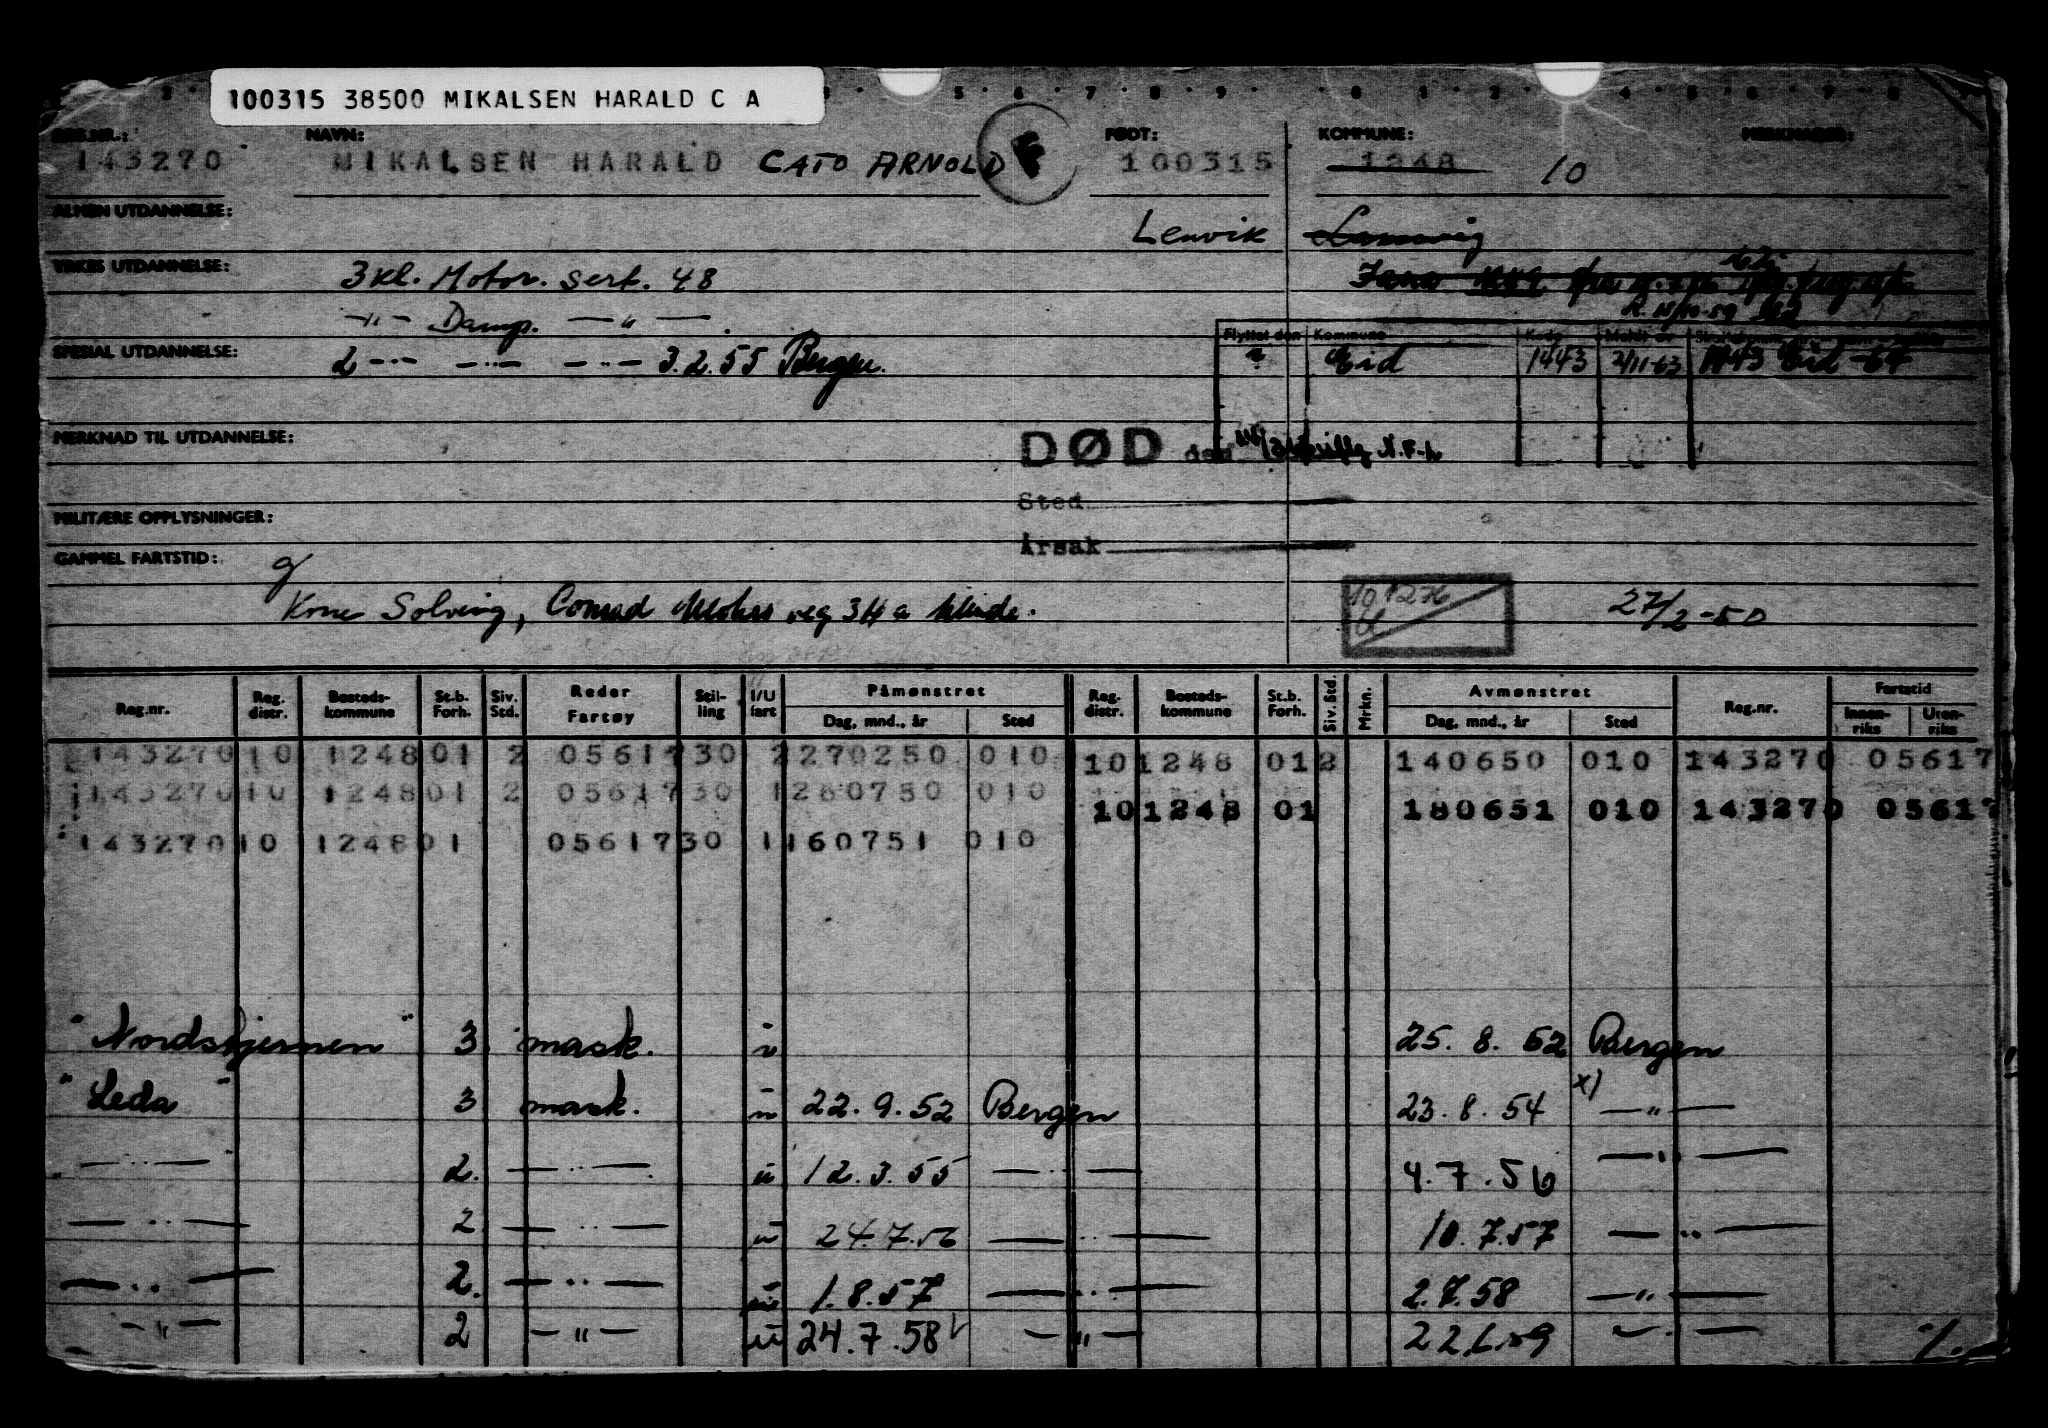 100315 38500 MIKALSEN HARALD C A
REG.NR.: NAVN: FØDT: KOMMUNE: MERKNADER:
143270 MIKALSEN HARALD CATO ARNOLD 100315 1248 10
ALMEN UTDANNELSE:
Lenvik
YRKES UTDANNELSE:
3 kl. Motor. sert. 48
—"— Damp. —"—
Flyttet den Kommune
SPESIAL UTDANNELSE:
2 —"— —"— —"— 3.2.55 Bergen.
? Eid 1443 2/11-63 1443 Eid -64
MERKNAD TIL UTDANNELSE:
DØD den
Sted
Årsak
MILITÆRE OPPLYSNINGER:
GAMMEL FARTSTID:
g
Kone Solveig, Conrad Mohns veg 34 a
27/2-50
Reg.nr. Reg. distr. Bosteds-kommune St.b. Forh. Siv. Std. Reder Fartøy Stil-ling I/U fart Påmønstret Dag, mnd., år Sted Reg. distr. Bosteds-kommune St.b. Forh. Siv. Std. Mrkn. Avmønstret Dag, mnd., år Sted Reg.nr. Fartstid Innen-riks Uten-riks
143270 10 1248 01 2 05617 30 2 270250 010 10 1248 01 2 140650 010 143270 05617
143270 10 1248 01 2 05617 30 1 280750 010 10 1248 01 180651 010 143270 05617
143270 10 1248 01 05617 30 1 160751 010
"Nordstjernen" 3 mask. u 25.8.52 Bergen
"Leda" 3 mask. u 22.9.52 Bergen 23.8.54 x) —"—
—"— 2. —"— u 12.3.55 —"— 4.7.56 —"—
—"— 2 —"— u 24.7.56 —"— 10.7.57 —"—
—"— 2. —"— u 1.8.57 —"— 2.7.58 —"—
—"— 2 —"— u 24.7.58 —"— 22.6.59 —"—